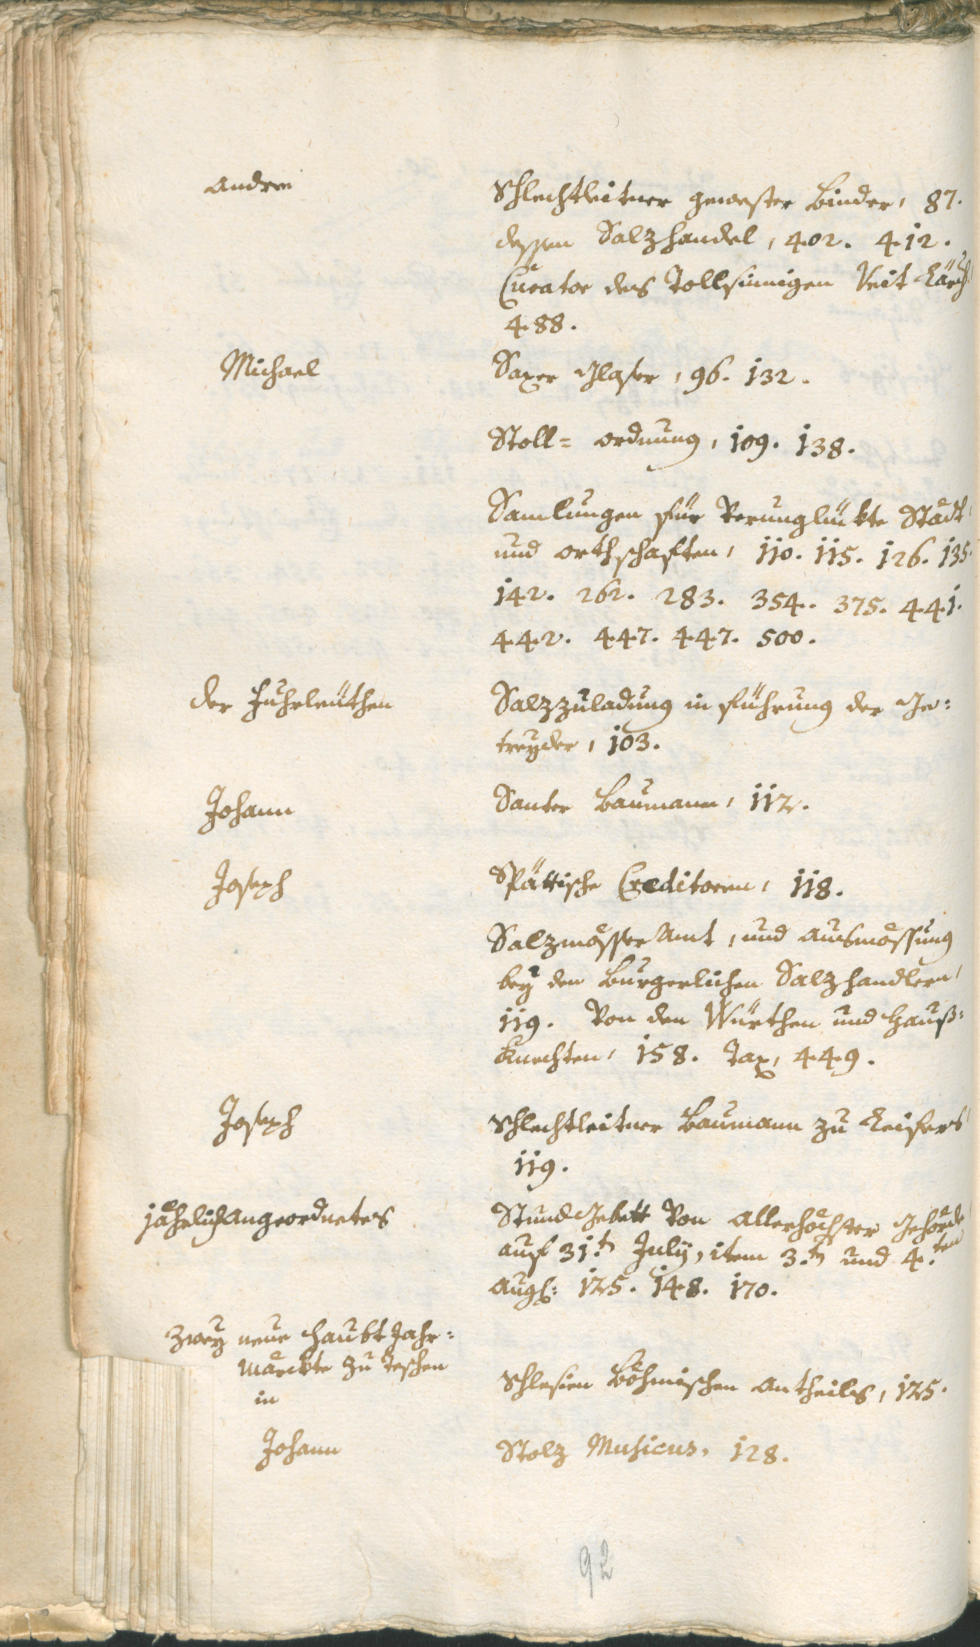 Andree Schlechtleitner gewester Binder, 87.
dessen Salzhandel, 402. 412.
Curator des Tollsinnigen Veit
488.
Michael Saxer Glaser, 96. 132.
Stoll= ordnung, 109. 138.
Samlungen für Verunglükte Städt,
und orthschaften, 110. 115. 126. 135.
142. 262. 283. 354. 375. 441.
442. 447. 447. 500.
der Fuhrleüthen Salzzuladung in führung der Ge:
treyder, 103.
Johann Santer Baumann, 112.
Joseph Spättische Creditoren, 118.
Salzmösser Amt, und ausmössung
bey den Burgerlichen Salzhandlern,
119. Von den Würthen und Hauß=
Knechten, 158. Tax, 449.
Joseph Schlechtleitner Baumann zu Leifers
119.
jährlich Angeordnetes StundGebett Von Allerhöchster Gehörde,
auf 31.t July, item 3.t und 4.ten
Aug: 125. 148. 170.
Zwey neue Haubt Jahr=
märckte zu Teschen
in Schlesien Böhmischen Antheils, 125.
Johann Stolz Musicus, 128.
92